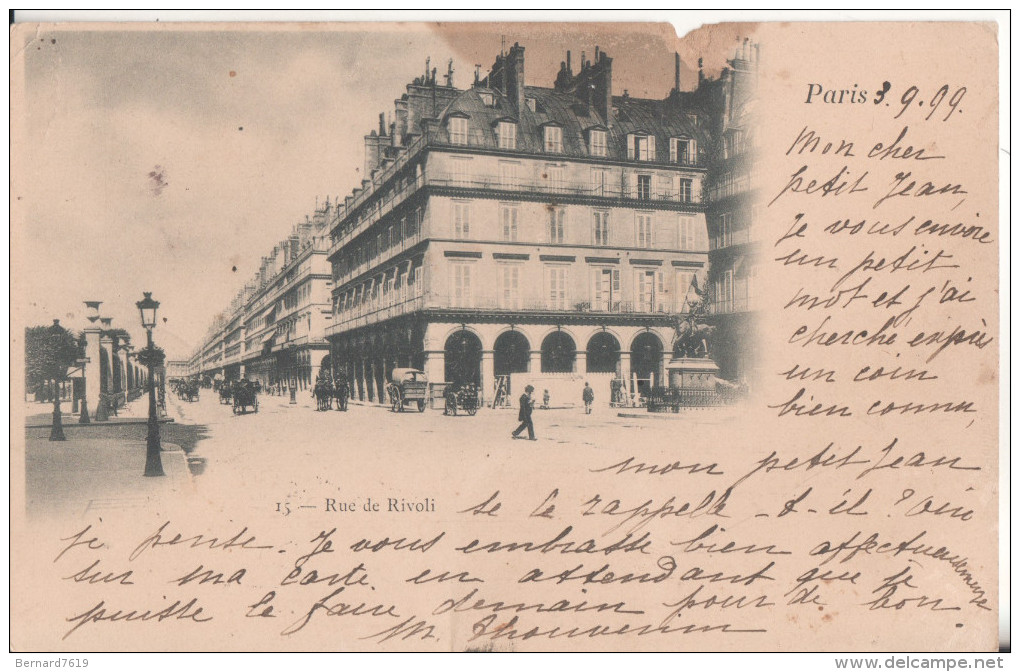 Paris 3.9.99.
Mon cher
petit Jean,
Je vous envoie
un petit
mot et j'ai
cherché exprès
un coin
bien connu,
mon petit Jean
15 — Rue de Rivoli
se le rappelle-t-il? Oui
je pense. Je vous embrasse bien affectueusement
sur ma carte en attendant que je
puisse le faire demain pour de bon
M. Thouvenin
Bernard7619
http://www.delcampe.net